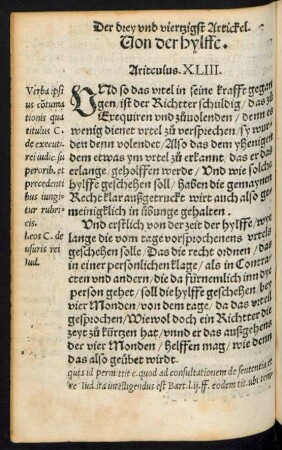 Der drey vnd viertzigst Artickel.
Von der hylffe.
Ariteulus. XLIII.
VND so das vrtel in seine krafft gegan
gen / ist der Richtter schuldig / das zů
Exequiren vnd zůuolenden / denn es
wenig dienet vrtel zů versprechen / sy wur⸗
den denn volendet / Also das dem yhenigen
dem etwas ym vrtel zů erkannt / das er das
erlange / geholffen werde / Vnd wie solchs
hylffe geschehen soll / haben die gemaynen
Recht klar außgetruckt wirt auch also ge⸗
meinigklich in übunge gehalten.
Vnd erstlich von der zeit der hylffe / wye
lange die vom tage vorsprochenens vrtels
geschehen solle / Das die recht ordnen / das
in einer personlichen klage / als in Contra⸗
cten vnd andern / die da fürnemlich inn dye
person gehet / soll die hylffe geschehen bey
vier Monden / von dem tage / da das vrteil
gesprochen / Wiewol doch ein Richtter die
zeyt zů kürtzen hat / vnnd er das außgehens
der vier Monden / helffen mag / wie denn
das also geübet wirdt.
Verba ipsi
us cōtuma
tionis qua
titulus C.
de executi
rei iudic. su
perorib. et
precedenti
bus iungi
tur rubri⸗
cis.
Leos C. de
usuris rei
iud.
quia id permittie c. quod ad consultationem de sententia et
re iud. ita intelligendus est Bart. l. ij. ff. eodem tit. ubi